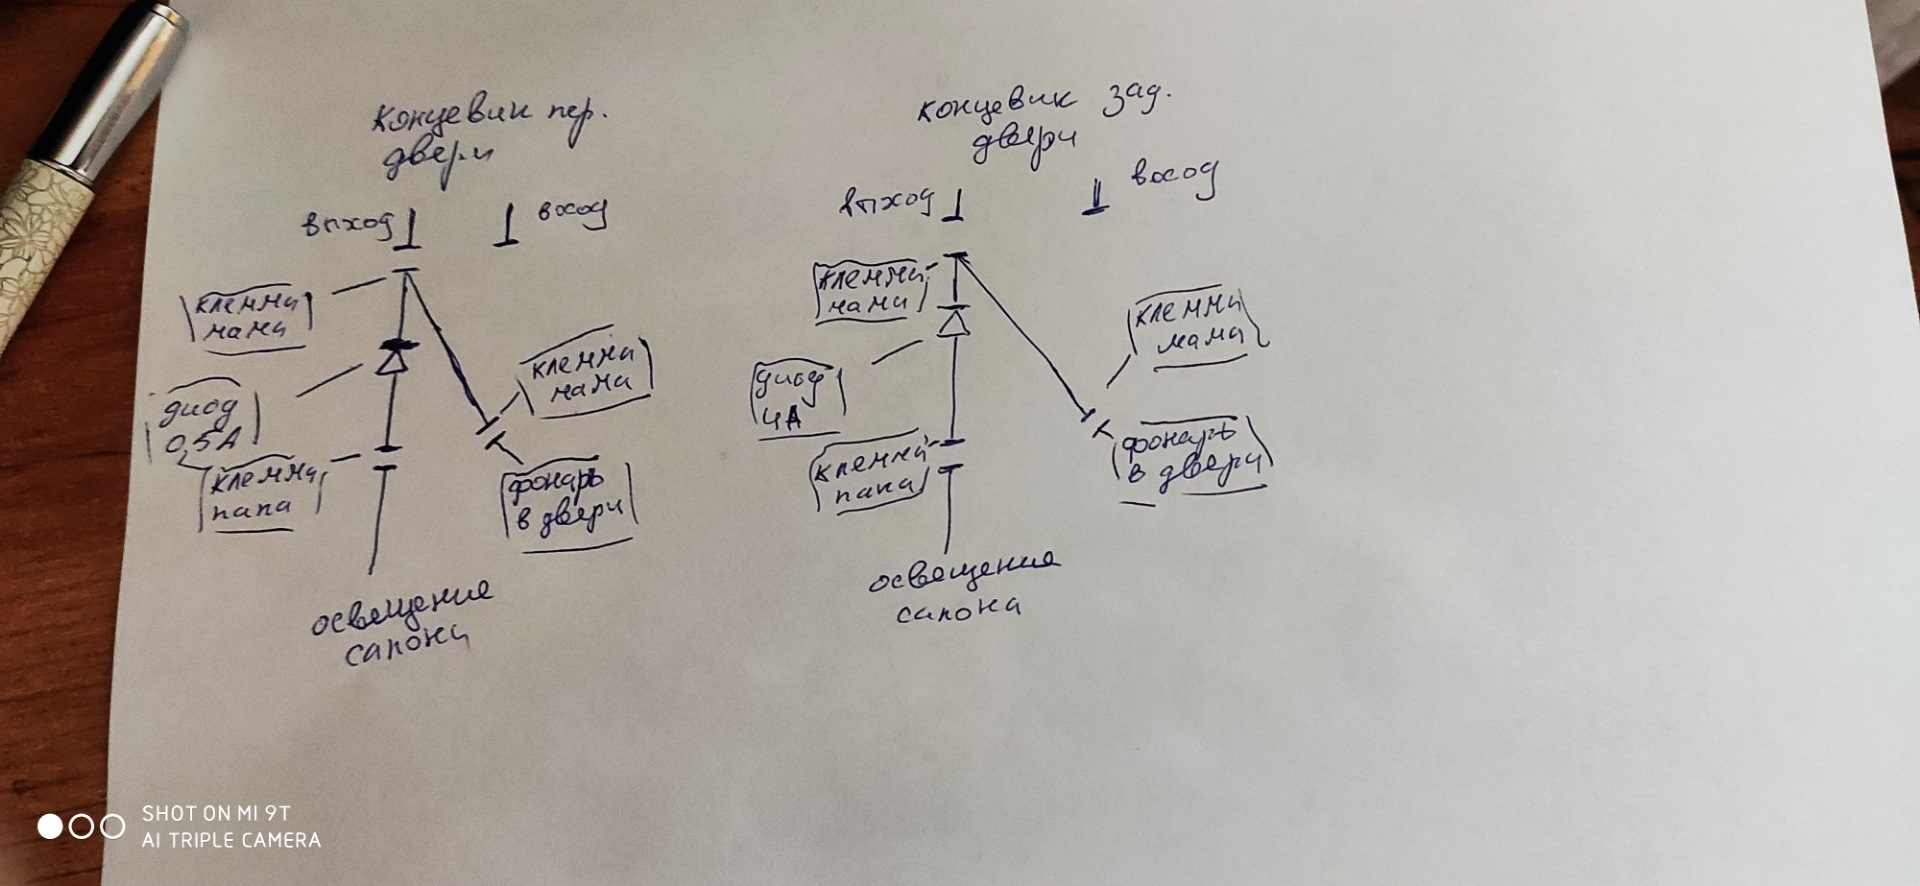 концевик пер.
двери
выход
вход
клемма
мама
диод
0,5А
клемма
мама
клемма
папа
фонарь
в двери
освещение
салона
концевик зад.
двери
выход
вход
клемма
мама
клемма
мама
диод
4А
клемма
папа
фонарь
в двери
освещение
салона
SHOT ON MI 9T
AI TRIPLE CAMERA